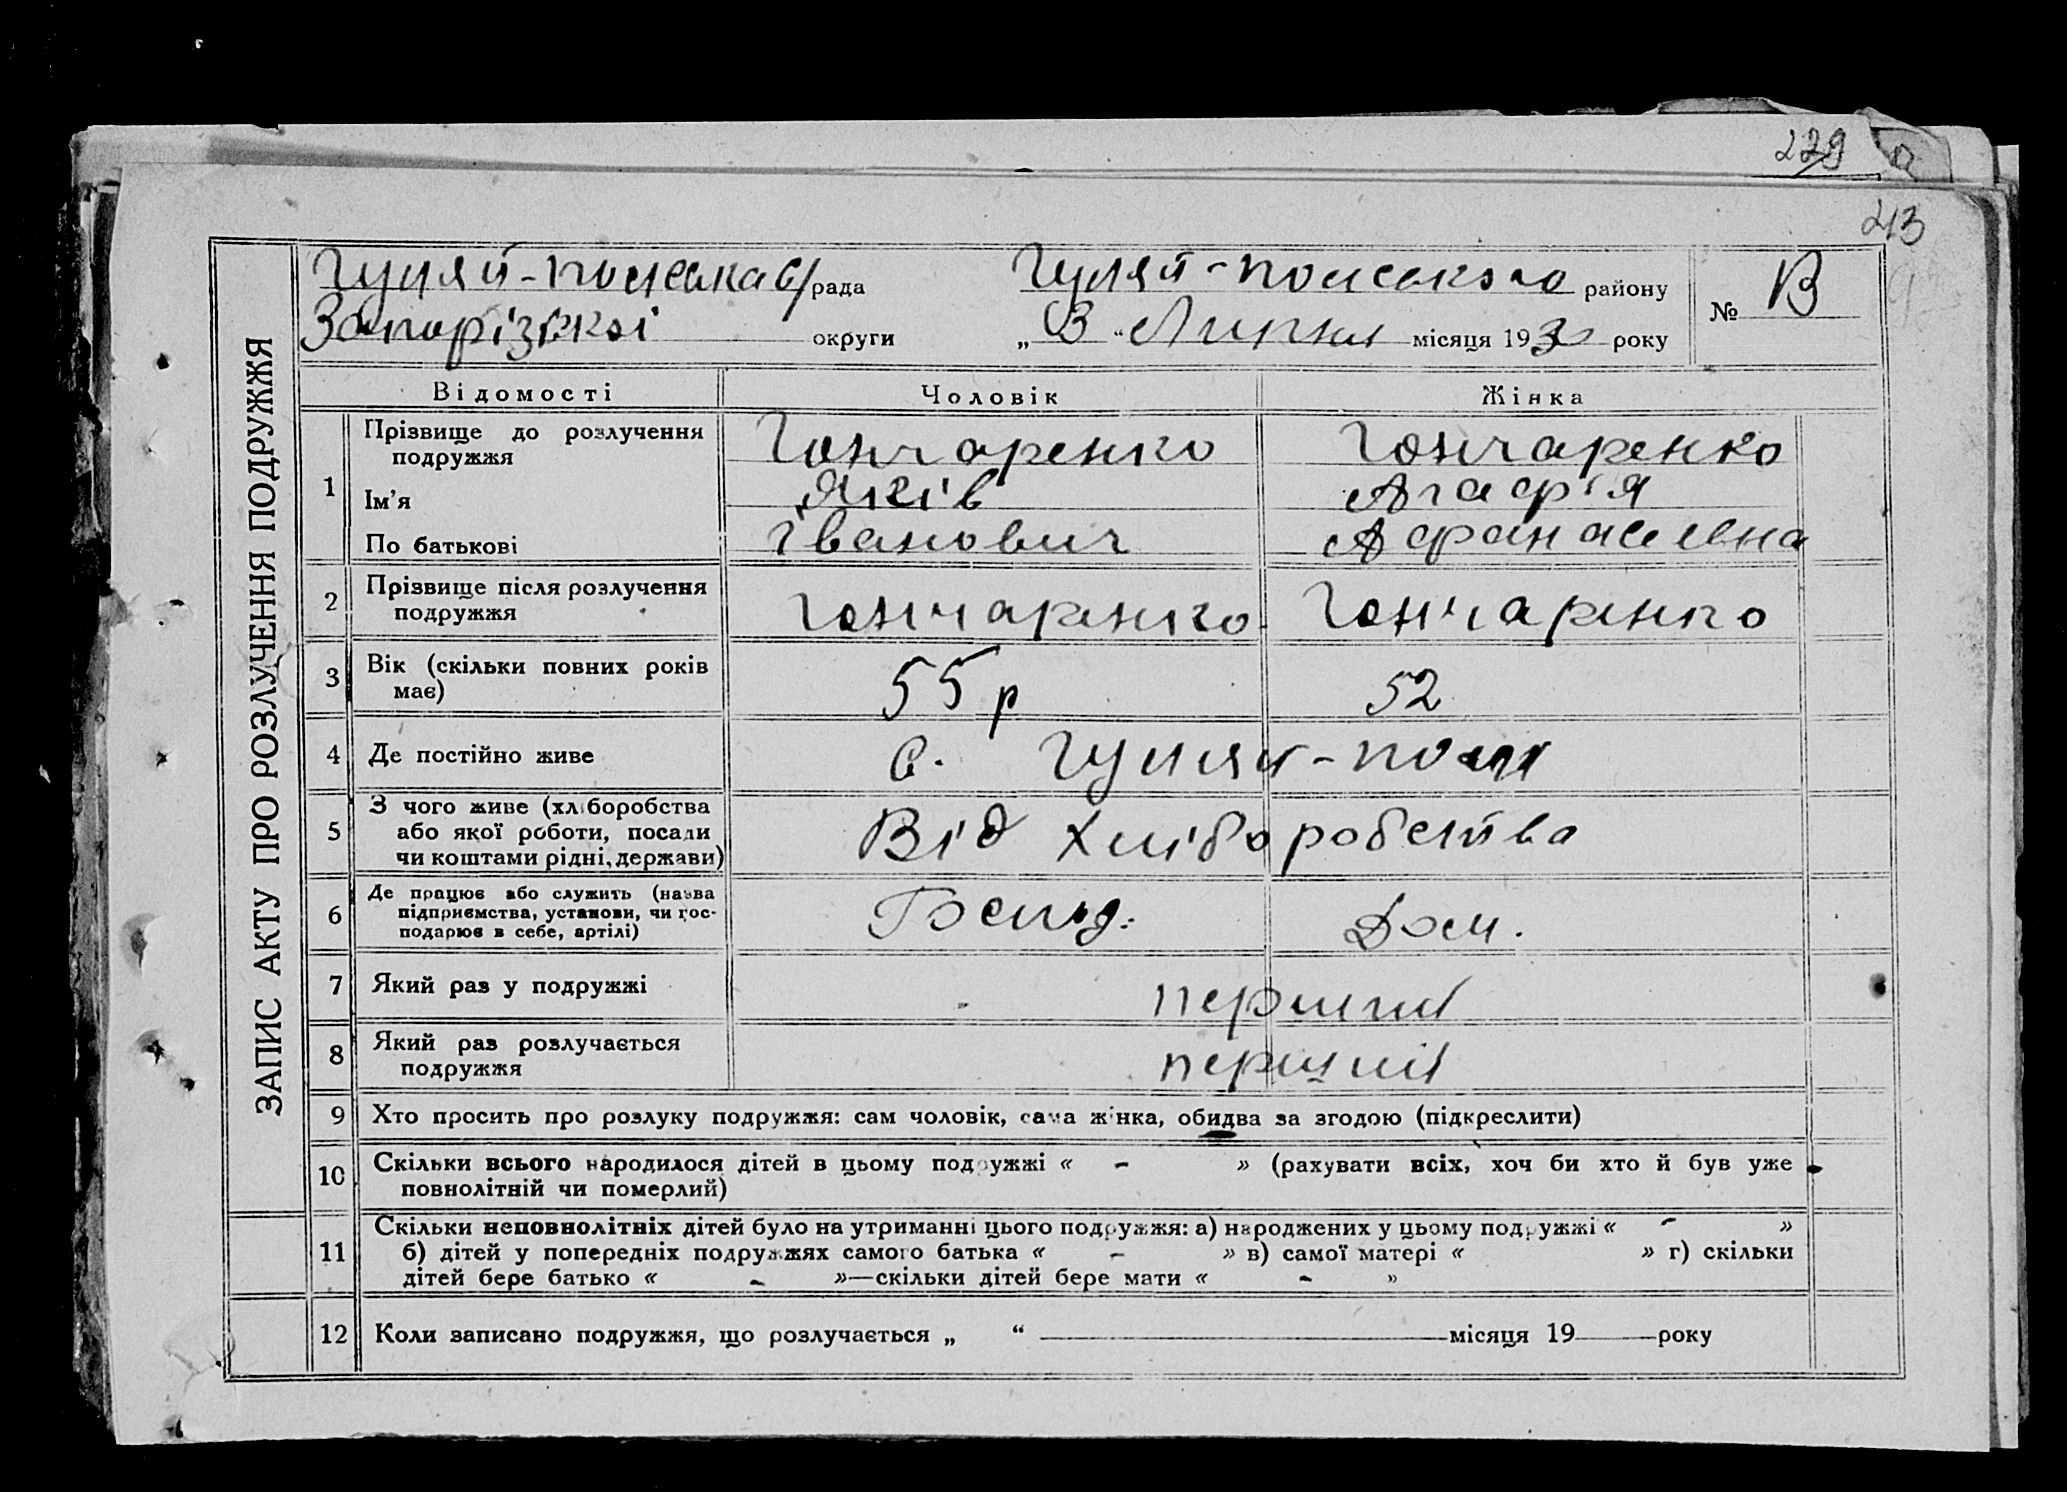 229
213
ЗАПИС АКТУ ПРО РОЗЛУЧЕННЯ ПОДРУЖЖЯ
Гуляй-Польська с/рада Гуляй-Польського району
№ 13
Запорізької округи „ 13 “ Липня місяця 1930 року
Відомості Чоловік Жінка
1 Прізвище до розлучення подружжя Гончаренко Гончаренко
Ім’я Яків Агафія
По батькові Іванович Афанасиевна
2 Прізвище після розлучення подружжя Гончаренко Гончаренко
3 Вік (скільки повних років має) 55 р 52
4 Де постійно живе с. Гуляй-Поля
5 З чого живе (хліборобства або якої роботи, посади чи коштами рідні, держави) Від хліборобства
6 Де працює або служить (назва підприємства, установи, чи господарює в себе, артілі) Госпд. Дом.
7 Який раз у подружжі перший
8 Який раз розлучається подружжя перший
9 Хто просить про розлуку подружжя: сам чоловік, сама жінка, обидва за згодою (підкреслити)
10 Скільки всього народилося дітей в цьому подружжі « - » (рахувати всіх, хоч би хто й був уже
повнолітній чи померлий)
11 Скільки неповнолітніх дітей було на утриманні цього подружжя: а) народжених у цьому подружжі « - »
б) дітей у попередніх подружжях самого батька « - » в) самої матері « » г) скільки
дітей бере батько « - »—скільки дітей бере мати « - »
12 Коли записано подружжя, що розлучається „ “ місяця 19 року